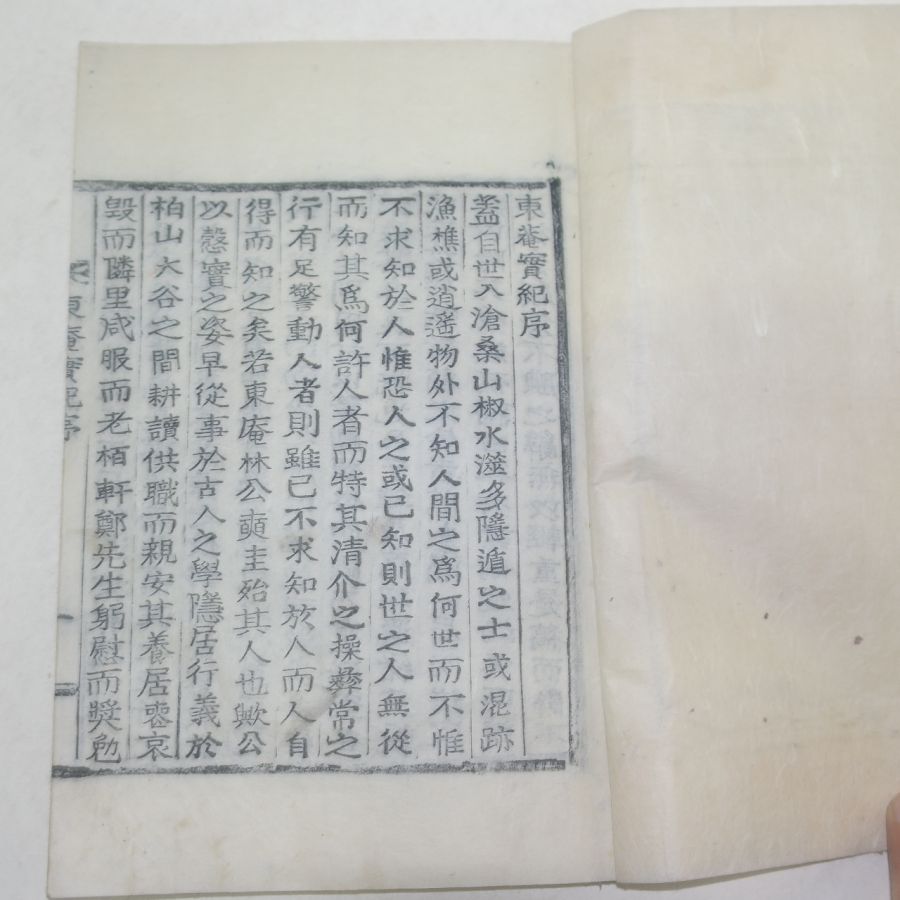 東菴實紀序
蓋自世入滄桑山椒水澨多隱遁之士或混跡
漁樵或逍遙物外不知人間之爲何世而不惟
不求知於人惟恐人之或已知則世之人無從
而知其爲何許人者而特其清介之操彝常之
行有足警動人者則雖已不求知於人而人自
得而知之矣若東庵林公奭圭殆其人也歟公
以慤實之姿早從事於古人之學隱居行義於
柏山大谷之間耕讀供職而親安其養居喪哀
毀而隣里咸服而老栢軒鄭先生躬慰而奬勉
東庵實紀序